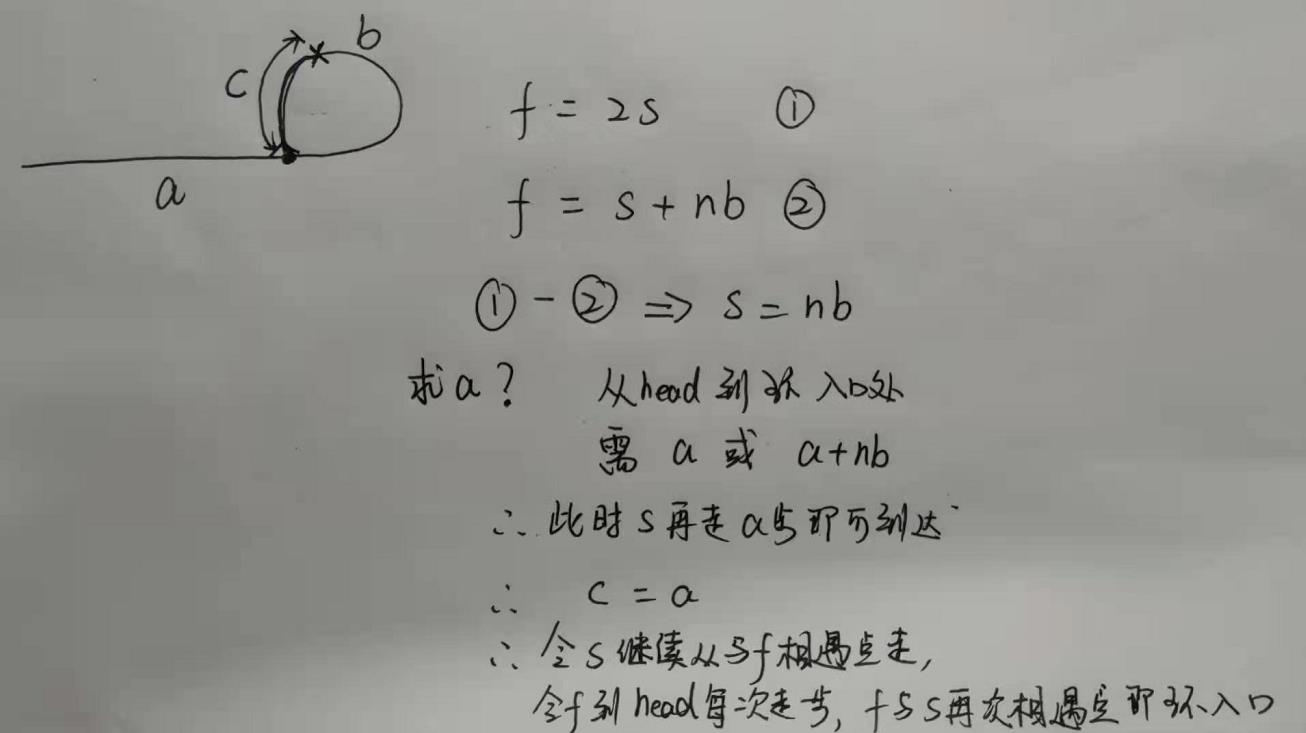 b
c
a
f = 2s ①
f = s + nb ②
① - ② => s = nb
求a? 从head到环入口处
需 a 或 a+nb
∴ 此时s再走a步即可到达
∴ c = a
∴ 令s继续从与f相遇点走,
令f到head每次走步, f与s再次相遇点即环入口